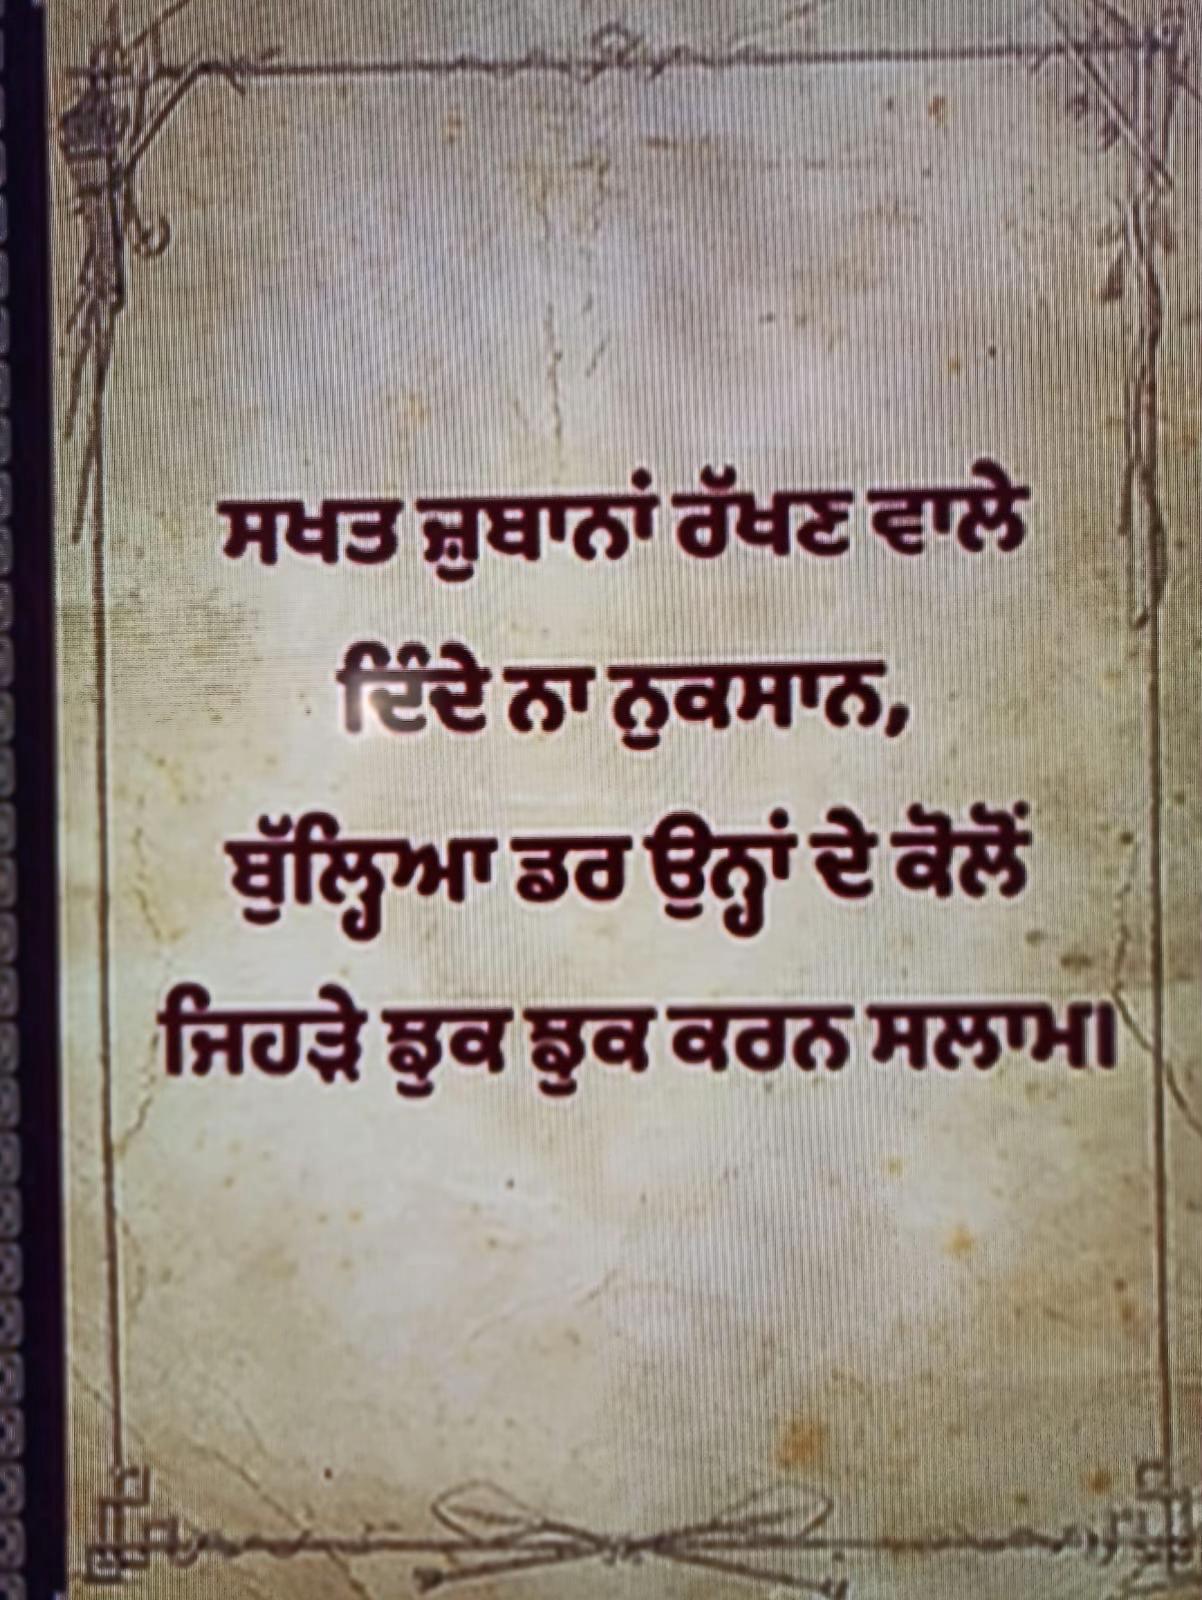 ਸਖਤ ਜ਼ੁਬਾਨਾਂ ਰੱਖਣ ਵਾਲੇ
ਦਿੰਦੇ ਨਾ ਨੁਕਸਾਨ,
ਬੁੱਲ੍ਹਿਆ ਡਰ ਉਨ੍ਹਾਂ ਦੇ ਕੋਲੋਂ
ਜਿਹੜੇ ਝੁਕ ਝੁਕ ਕਰਨ ਸਲਾਮ।